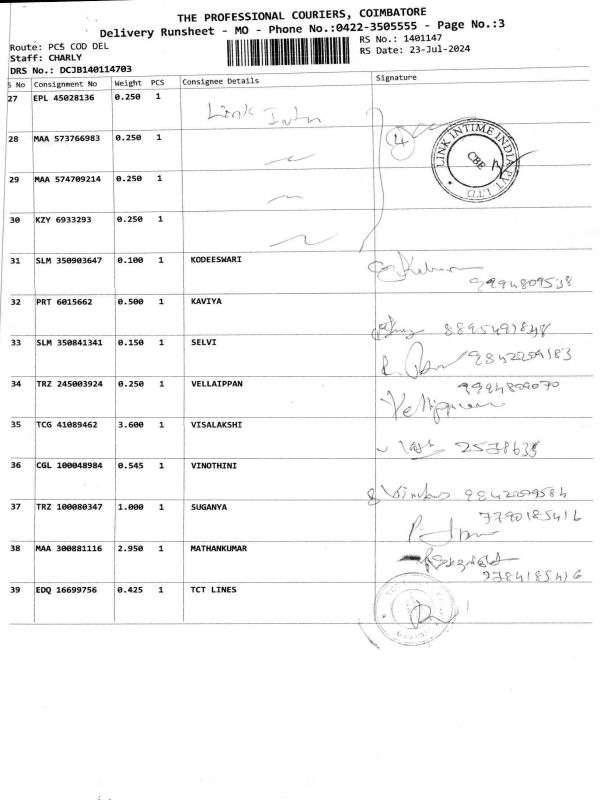 THE PROFESSIONAL COURIERS, COIMBATORE
Delivery Runsheet - MO - Phone No.:0422-3505555 - Page No.:3
Route: PCS COD DEL
RS No.: 1401147
Staff: CHARLY
RS Date: 23-Jul-2024
DRS No.: DCJB140114703
S No Consignment No Weight PCS Consignee Details Signature
27 EPL 45028136 0.250 1 Link Intm
28 MAA 573766983 0.250 1 4
LINK INTIME INDIA PVT. LTD. CBE
29 MAA 574709214 0.250 1
30 KZY 6933293 0.250 1
31 SLM 350903647 0.100 1 KODEESWARI
9994809538
32 PRT 6015662 0.500 1 KAVIYA
8895491848
33 SLM 350841341 0.150 1 SELVI
9842209183
34 TRZ 245003924 0.250 1 VELLAIPPAN
9994809070
35 TCG 41089462 3.600 1 VISALAKSHI
2578633
36 CGL 100048984 0.545 1 VINOTHINI
9842209584
37 TRZ 100080347 1.000 1 SUGANYA
7790185416
38 MAA 300881116 2.950 1 MATHANKUMAR
9784185416
39 EDQ 16699756 0.425 1 TCT LINES